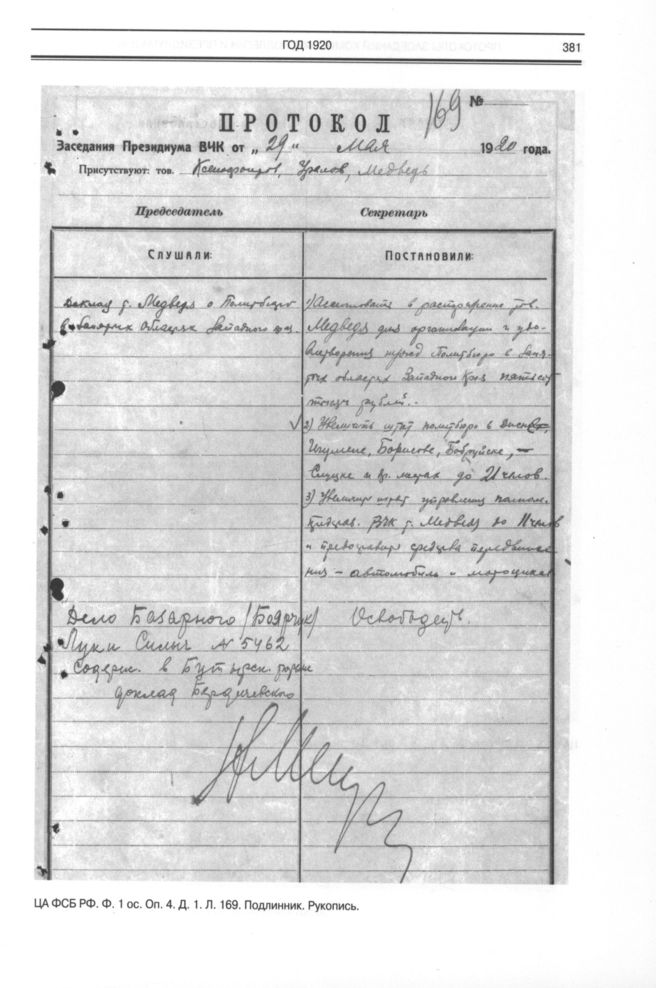 ГОД 1920
381
169 №
ПРОТОКОЛ
Заседания Президиума ВЧК от „29" Мая 1920 года.
Присутствуют: тов. Ксенофонтов, Уралов, Медведь
Председатель
Секретарь
СЛУШАЛИ:
ПОСТАНОВИЛИ:
Доклад т. Медведя о Политбюро
в областях Западного
1) Ассигновать в распоряжение тов.
Медведя для организации и удо-
влетворения нужд Политбюро в заня-
тых областях Западного Края пятьсот
тысяч рублей.
2) Увеличить штат политбюро в
Игумене, Борисове, Бобруйске, —
Слуцке и др. местах до 21 членов.
3) Увеличить штат управления полном.
ВЧК т. Медведя до
и средства передвиже
ния – автомобиль и мотоциклет
Дело Базарного (Боярчук)
Луки Силыч № 5462
содерж. в Бутырск. тюрьме
доклад Бердичевского
Освободить.
ЦА ФСБ РФ. Ф. 1 ос. Оп. 4. Д. 1. Л. 169. Подлинник. Рукопись.